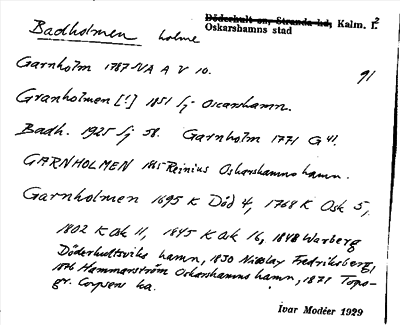 Badholmen holme
Döderhult sn, Stranda hd, Kalm. l.²
Oskarshamns stad
Garnholm 1787 NA A V 10. 91
Granholmen [!] 1851 Sj Oscarshamn.
Badh. 1925 Sj 58. Garnholm 1771 G 41.
GARNHOLMEN 1865 Reinius Oskarshamns hamn.
Garnholmen 1695 K Död 4, 1768 K Osk 5,
1802 K Osk 11, 1845 K Osk 16, 1848 Warberg
Döderhultsviks hamn, 1850 Nicolay Fredriksberg,
1856 Hammarström Oskarshamns hamn, 1871 Topo-
gr. Corpsen ka.
Ivar Modéer 1929